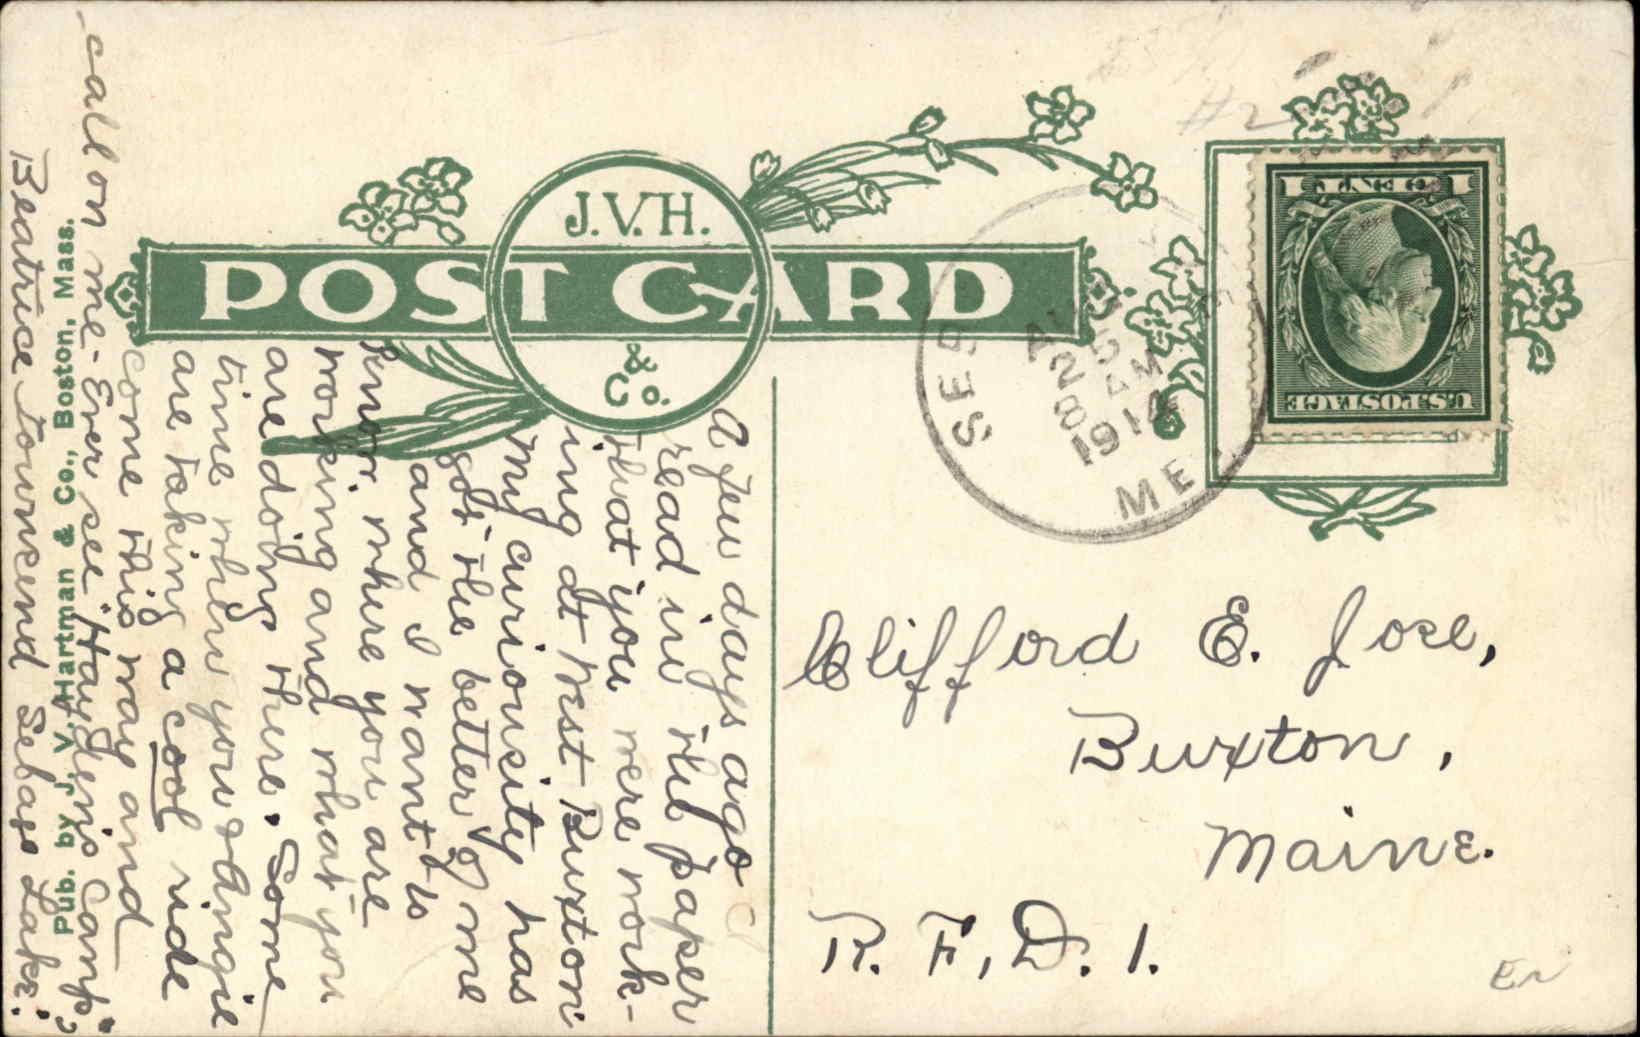 J.V.H.
POST CARD
&
Co.
#2
SEB
AU
25
8 AM
1914
ME.
1 CENT 1
U.S. POSTAGE
Clifford E. Jose,
Buxton,
Maine.
R. F. D. 1.
A few days ago I
read in the paper
that you were work-
ing at West Buxton
My curiousity has
got the better of me
and I want to
know where you are
working and what you
are doing there. Some
time when you & Angie
are taking a cool ride
come this way and
call on me - Ever see "Hayden's Camp"?
Beatrice Townsend Sebago Lake.
Pub. by J. V. Hartman & Co., Boston, Mass.